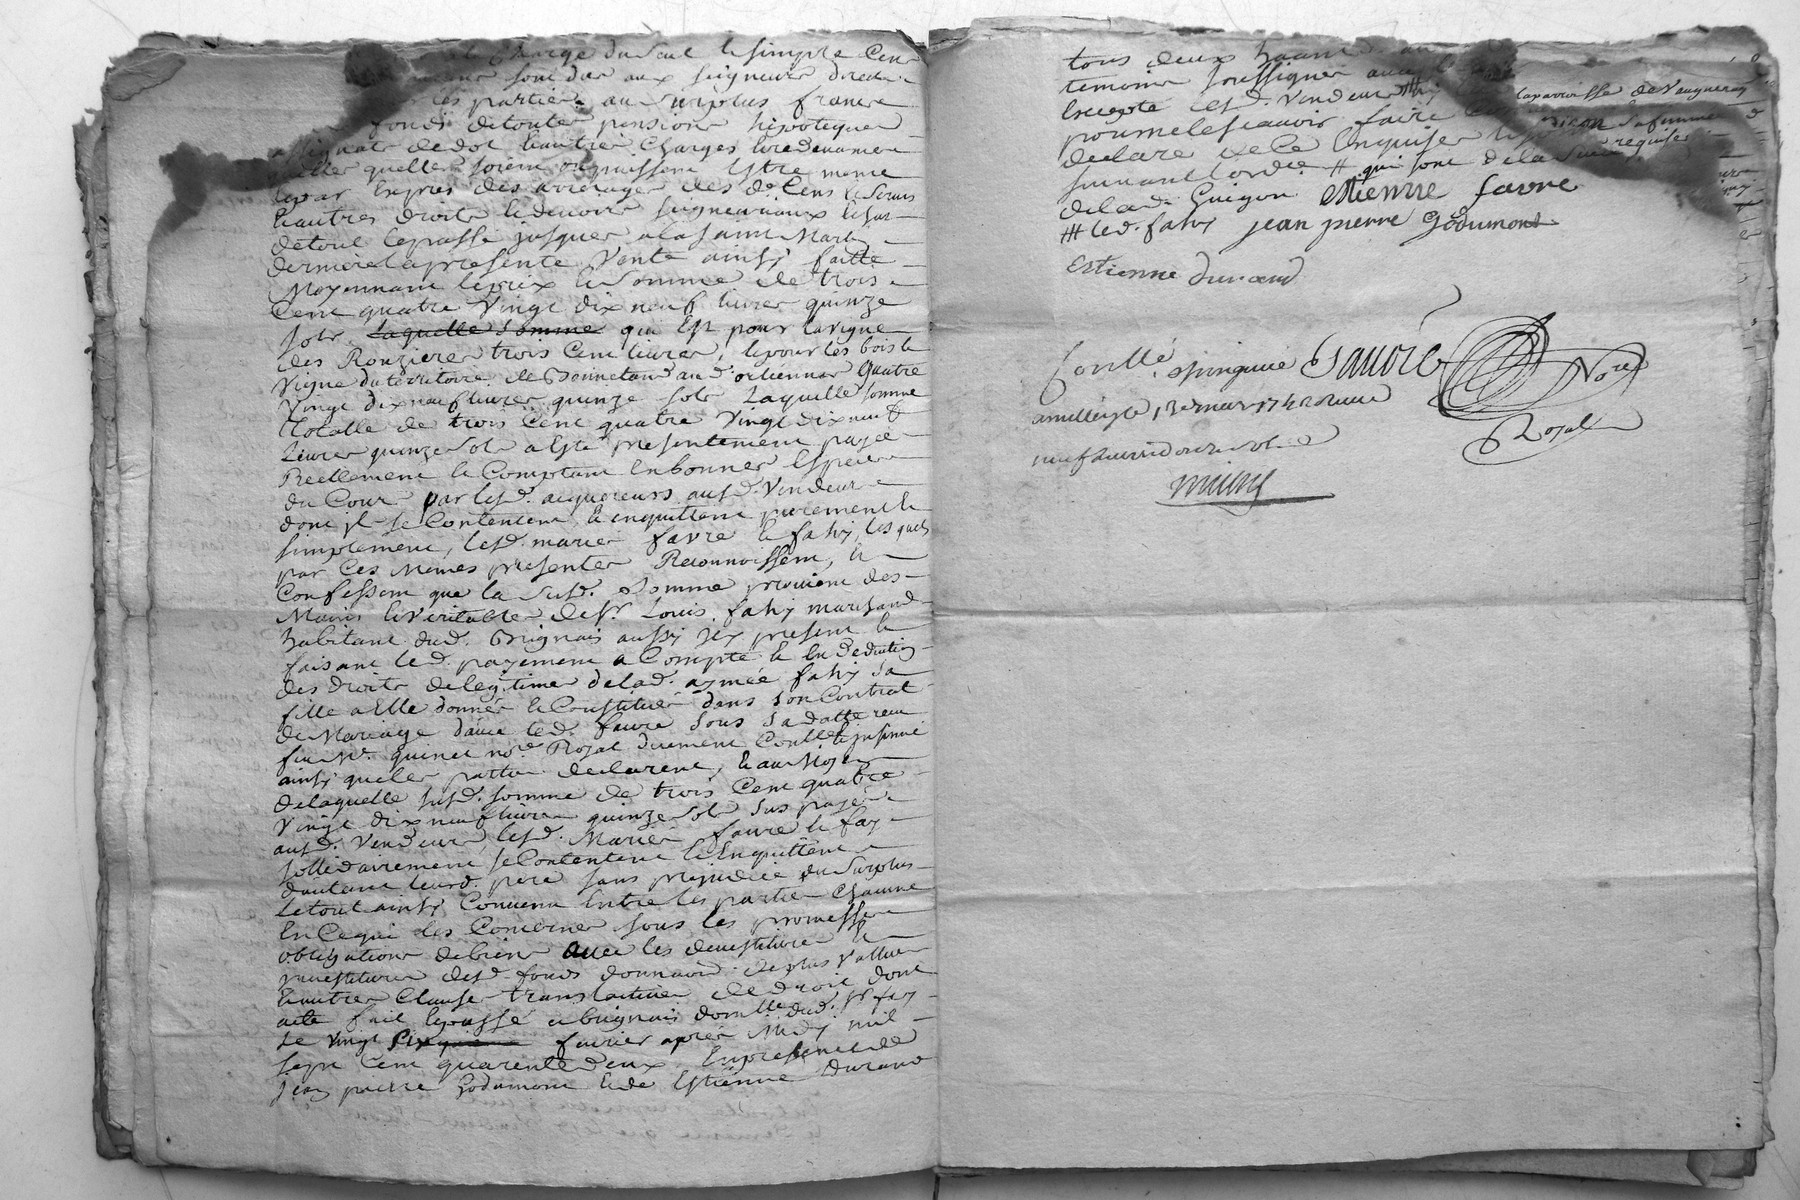 Charge du seul & simple Cens
sont dus aux seigneurs directs
les parties au surplus francs
fonds detoutes pensions hipoteques
dedot & autres charges
quelles soient ou puissent Estre meme
par Exprés des arrerages des d. Cens & servis
& autres droits & devoirs seigneuriaux &
detout lepassé jusques ala saint Martin
derniere la presente Vente ainsy faitte
Moyennant leprix & somme de trois
Cent quatre Vingt dix neuf livres quinze
sols laquelle somme qui Est pour lavigne
des Ronzieres trois Cent livres, & pour les bois &
Vigne du territoire de Bonnetand au d. orliennas quatre
Vingt dix neuf livres quinze sols Laquelle somme
totalle de trois Cent quatre Vingt dix neuf
Livres quinze sols a Esté presentement payée
Reellement & Comptant En bonnes Especes
du Cour par lesd. acquereurs ausd. Vendeurs
dont jls se Contentent, & enquittent purement &
simplement, lesd. mariés favre & fahy, les quels
par Ces Memes presentes Reconnoissent, &
Confessent que la susd. somme provient des
Mains & Veritables de sr. Louis fahy marchand
habitant dud. Brignais aussy jcy present &
faisant led. payement a Compte & En deduction
des droits delegitimes delad. aymée fahy sa
fille a Elle donnés & Constitués dans son Contrat
de Mariage d'avec led. favre sous sa datte receu
feu Me. quinet nore. Royal duement Contllé & jnsinué
ainsy queles parties declarent, & au Moyen
delaquelle susd. somme de trois Cent quatre
Vingt dix neuf livres quinze sols sus payée
ausd. Vendeurs, lesd. Mariés favre & fay
sollidairement se Contentent & Enquittent
d'autant leurd. pere sans prejudice du surplus
letout ainsy Convenu Entre les parties Chacune
En Cequi les Concerne sous les promesses
obligations debiens avec les devestitures &
jnvestitures desd. fonds donnaon. deplus Vallue
& autres Clauses translatives de droit dont
acte fait & passé a brignais domlle dud. sr fay
Le vingt six fevrier aprés Midy mil
sept Cent quarente deux En presence de
Jean pierre Godumont & de Estienne durand
tous deux
temoins soussignes avec
Excepté lesd. Vendeurs laparroisse de Vaugneray
pour ne lesçavoir faire sa femme
declaré de Ce Enquises & requises
suivant lordce. # qui sont dela
delad. Guigon Etienne favre
## led. fahy jean pierre Godumont
Estienne durand
Contllé. Sauvre Nore
Royal
neuf livres douze sols